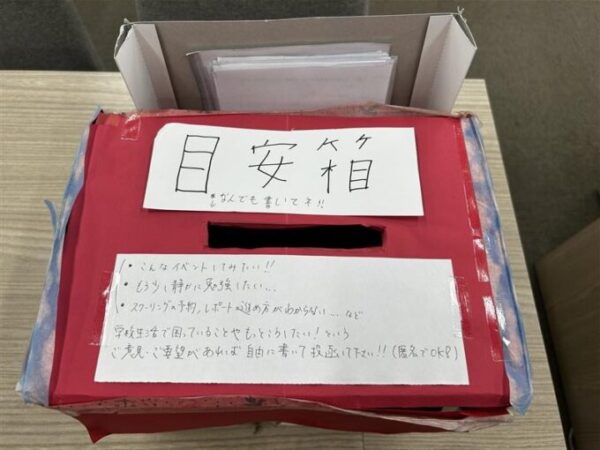 目安箱
なんでも書いてネ!!
・こんなイベントしてみたい!!
・もう少し静かに勉強したい...
・スクーリングの予約、レポートの進め方がわからない... など
学校生活で困っていることやもっとこうしたい!という
ご意見・ご要望があれば自由に書いて投函して下さい!!(匿名でOK!?)